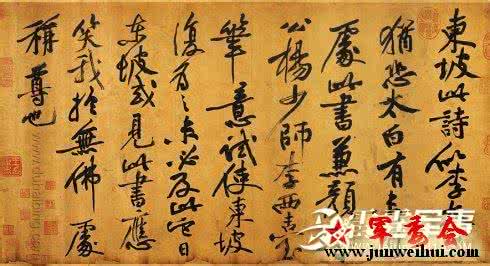 東坡此詩似李太
猶恐太白有未
處此書兼顏
公楊少師李西臺
筆意試使東坡
復為之未必及此它日
東坡或見此書應
笑我於無佛處
稱尊也
www.junweihui.com